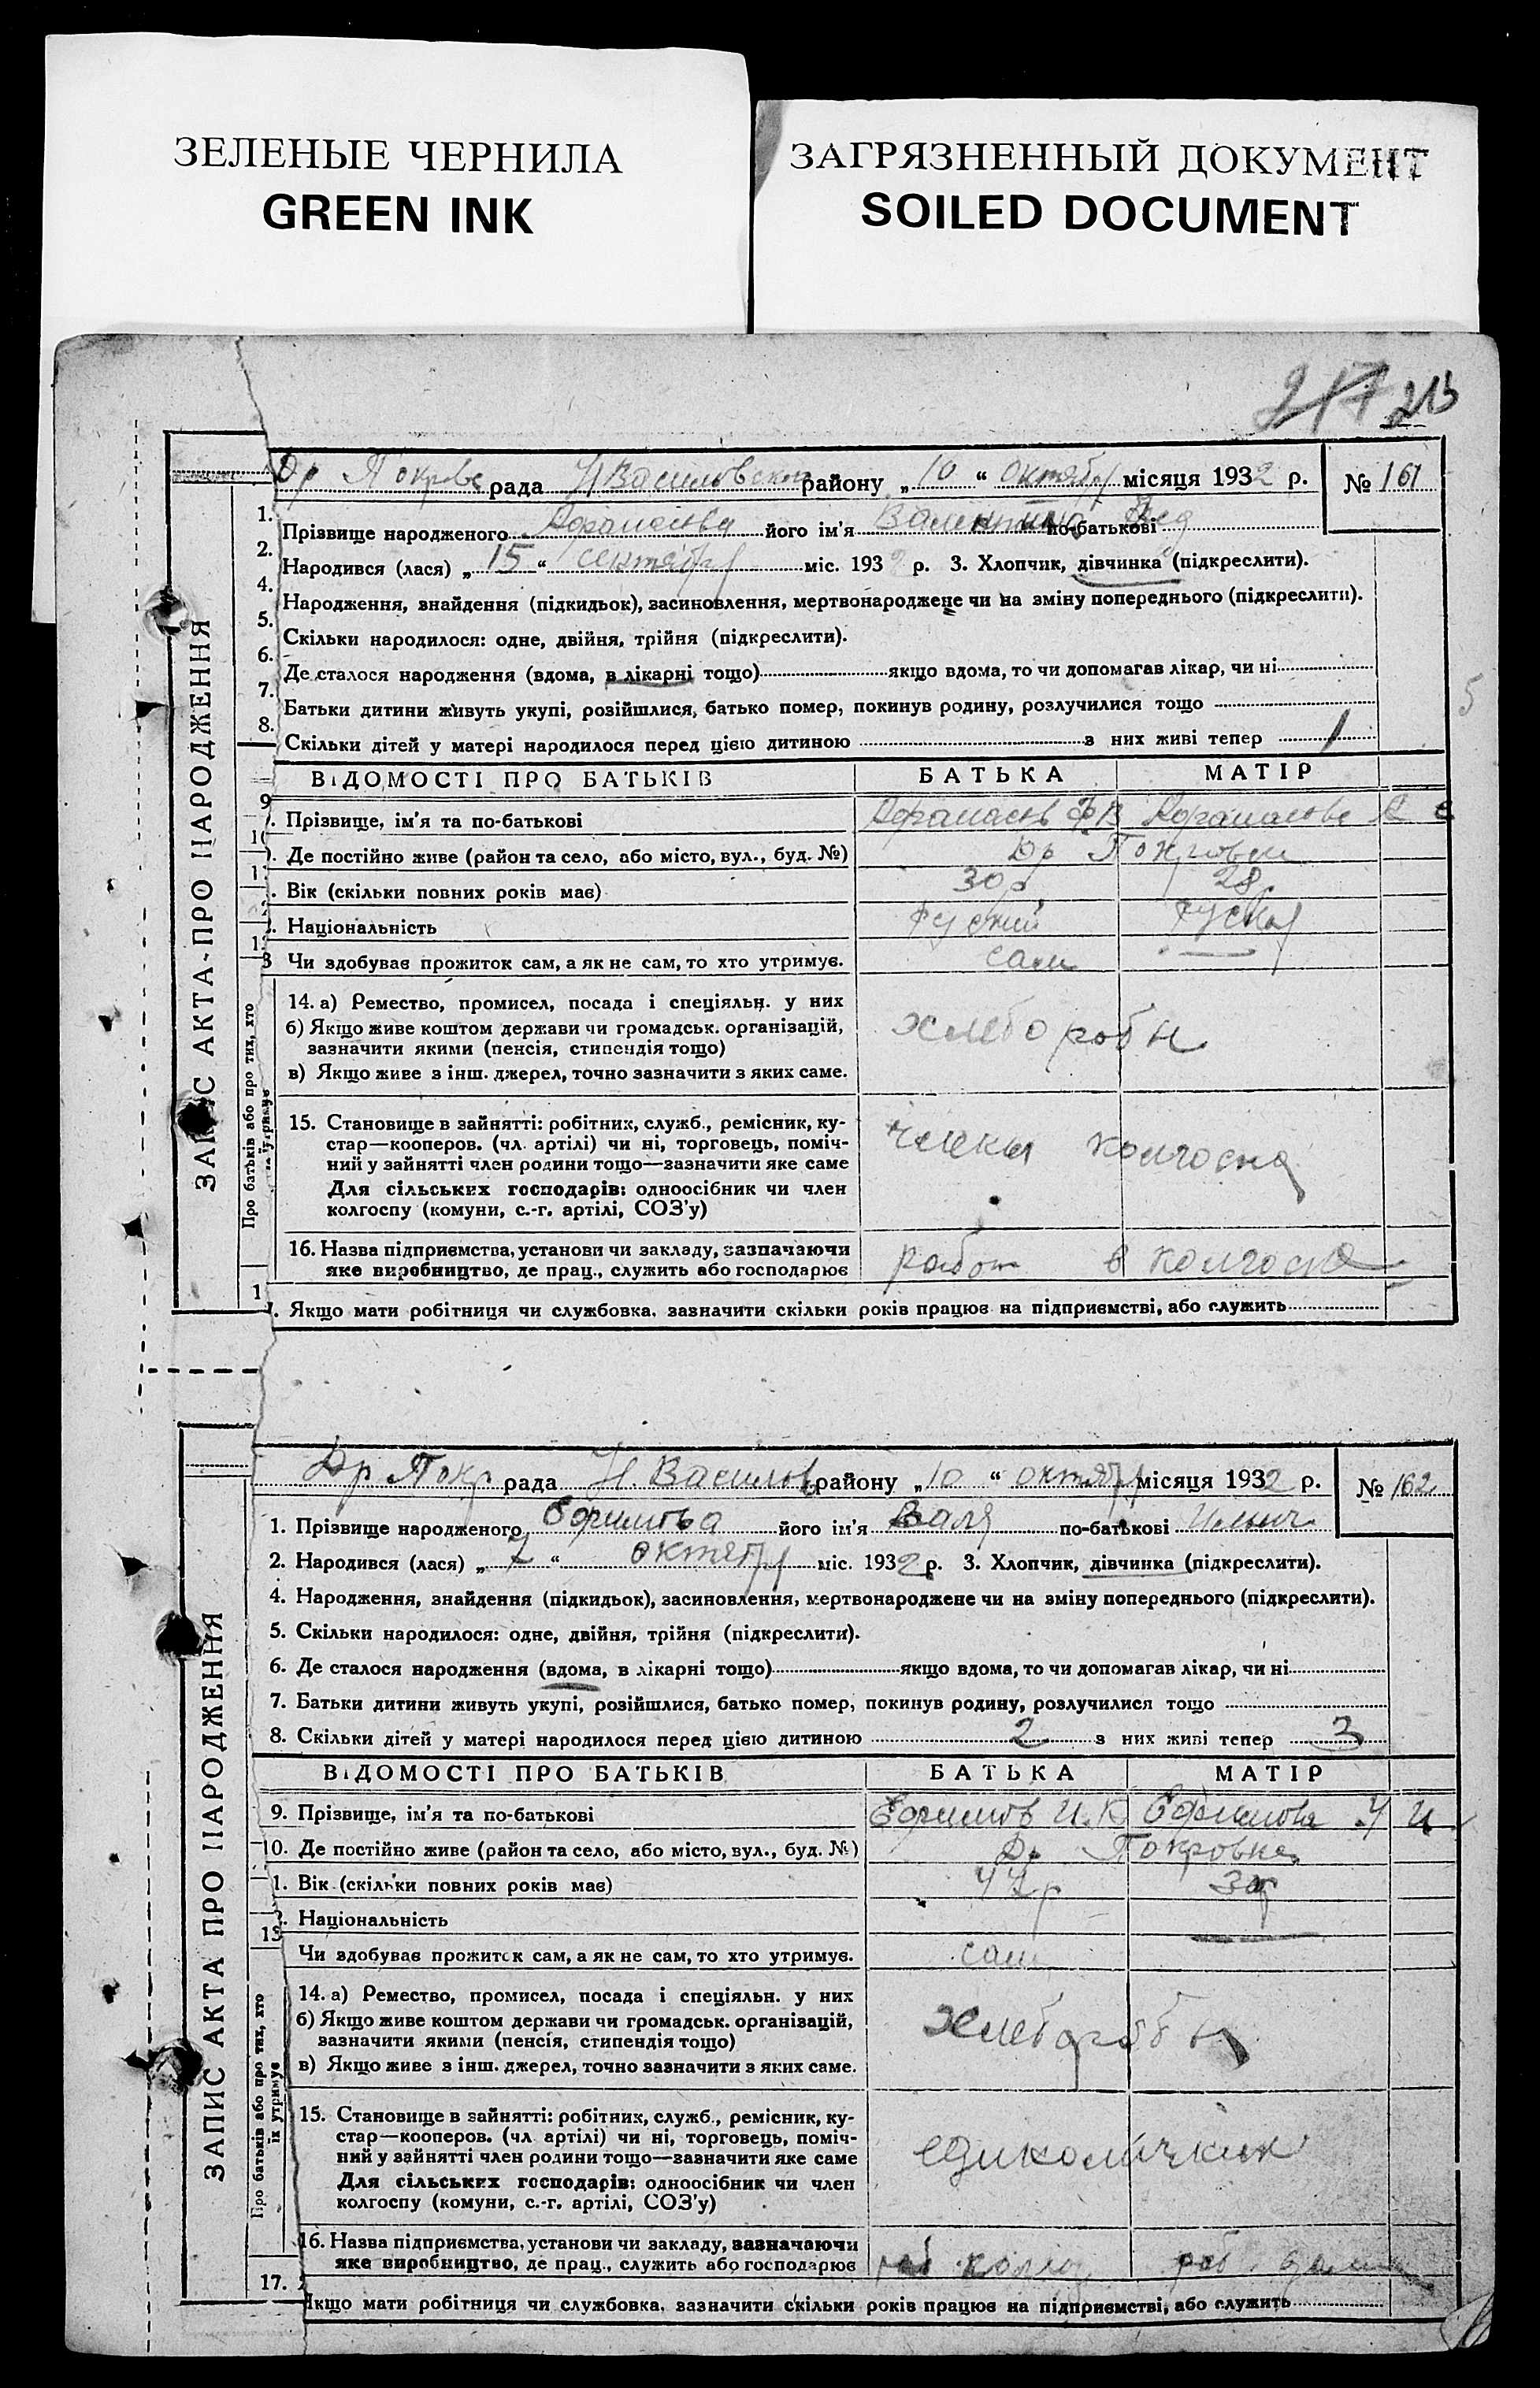 ЗЕЛЕНЫЕ ЧЕРНИЛА
GREEN INK
ЗАГРЯЗНЕННЫЙ ДОКУМЕНТ
SOILED DOCUMENT
217 213
ЗАПИС АКТА ПРО НАРОДЖЕННЯ
Др Покровс рада Н Василовского району „ 10 “ октября місяця 1932 р. № 161
1. Прізвище народженого Афанасьева його ім'я Валентина по-батькові Фед
2. Народився (лася) „ 15 “ сентября міс. 1932 р. 3. Хлопчик, дівчинка (підкреслити).
4. Народження, знайдення (підкидьок), засиновлення, мертвонароджене чи на зміну попереднього (підкреслити).
5. Скільки народилося: одне, двійня, трійня (підкреслити).
6. Де сталося народження (вдома, в лікарні тощо) якщо вдома, то чи допомагав лікар, чи ні
7. Батьки дитини живуть укупі, розійшлися, батько помер, покинув родину, розлучилися тощо
8. Скільки дітей у матері народилося перед цією дитиною з них живі тепер 1
ВІДОМОСТІ ПРО БАТЬКІВ БАТЬКА МАТІР
9. Прізвище, ім'я та по-батькові Афанасьев Ф В Афанасьева А Е
Де постійно живе (район та село, або місто, вул., буд. №) Др Покровка
Вік (скільки повних років має) 30 р 28 р
Національність руский руская
13 Чи здобував прожиток сам, а як не сам, то хто утримує. сам —
Про батьків або про тих, хто їх утримує
14. а) Ремество, промисел, посада і спеціяльн. у них
б) Якщо живе коштом держави чи громадськ. організацій,
зазначити якими (пенсія, стипендія тощо)
в) Якщо живе з інш. джерел, точно зазначити з яких саме.
хлеборобы
15. Становище в зайнятті: робітник, служб., ремісник, ку-
стар—кооперов. (чл. артілі) чи ні, торговець, поміч-
ний у зайнятті член родини тощо—зазначити яке саме
Для сільських господарів: одноосібник чи член
колгоспу (комуни, с.-г. артілі, СОЗ'у)
члены колхоза
16. Назва підприємства, установи чи закладу, зазначаючи
яке виробництво, де прац., служить або господарює
работ в колхозе
Якщо мати робітниця чи службовка, зазначити скільки років працює на підприємстві, або служить
ЗАПИС АКТА ПРО НАРОДЖЕННЯ
Др Покр рада Н. Васиlов району „ 10 “ октября місяця 1932 р. № 162
1. Прізвище народженого Ефимова його ім'я Валя по-батькові Ильич
2. Народився (лася) „ 7 “ октября міс. 1932 р. 3. Хлопчик, дівчинка (підкреслити).
4. Народження, знайдення (підкидьок), засиновлення, мертвонароджене чи на зміну попереднього (підкреслити).
5. Скільки народилося: одне, двійня, трійня (підкреслити).
6. Де сталося народження (вдома, в лікарні тощо) якщо вдома, то чи допомагав лікар, чи ні
7. Батьки дитини живуть укупі, розійшлися, батько помер, покинув родину, розлучилися тощо
8. Скільки дітей у матері народилося перед цією дитиною 2 з них живі тепер 3
ВІДОМОСТІ ПРО БАТЬКІВ БАТЬКА МАТІР
9. Прізвище, ім'я та по-батькові Ефимов И. К Ефимова У И
10. Де постійно живе (район та село, або місто, вул., буд. №) Др Покровка
Вік (скільки повних років має) 47 р
Національність
13 Чи здобував прожиток сам, а як не сам, то хто утримує. сам —
Про батьків або про тих, хто їх утримує
14. а) Ремество, промисел, посада і спеціяльн. у них
б) Якщо живе коштом держави чи громадськ. організацій,
зазначити якими (пенсія, стипендія тощо)
в) Якщо живе з інш. джерел, точно зазначити з яких саме.
хлеборобы
15. Становище в зайнятті: робітник, служб., ремісник, ку-
стар—кооперов. (чл. артілі) чи ні, торговець, поміч-
ний у зайнятті член родини тощо—зазначити яке саме
Для сільських господарів: одноосібник чи член
колгоспу (комуни, с.-г. артілі, СОЗ'у)
единоличник
16. Назва підприємства, установи чи закладу, зазначаючи
яке виробництво, де прац., служить або господарює
раб
17. Якщо мати робітниця чи службовка, зазначити скільки років працює на підприємстві, або служить